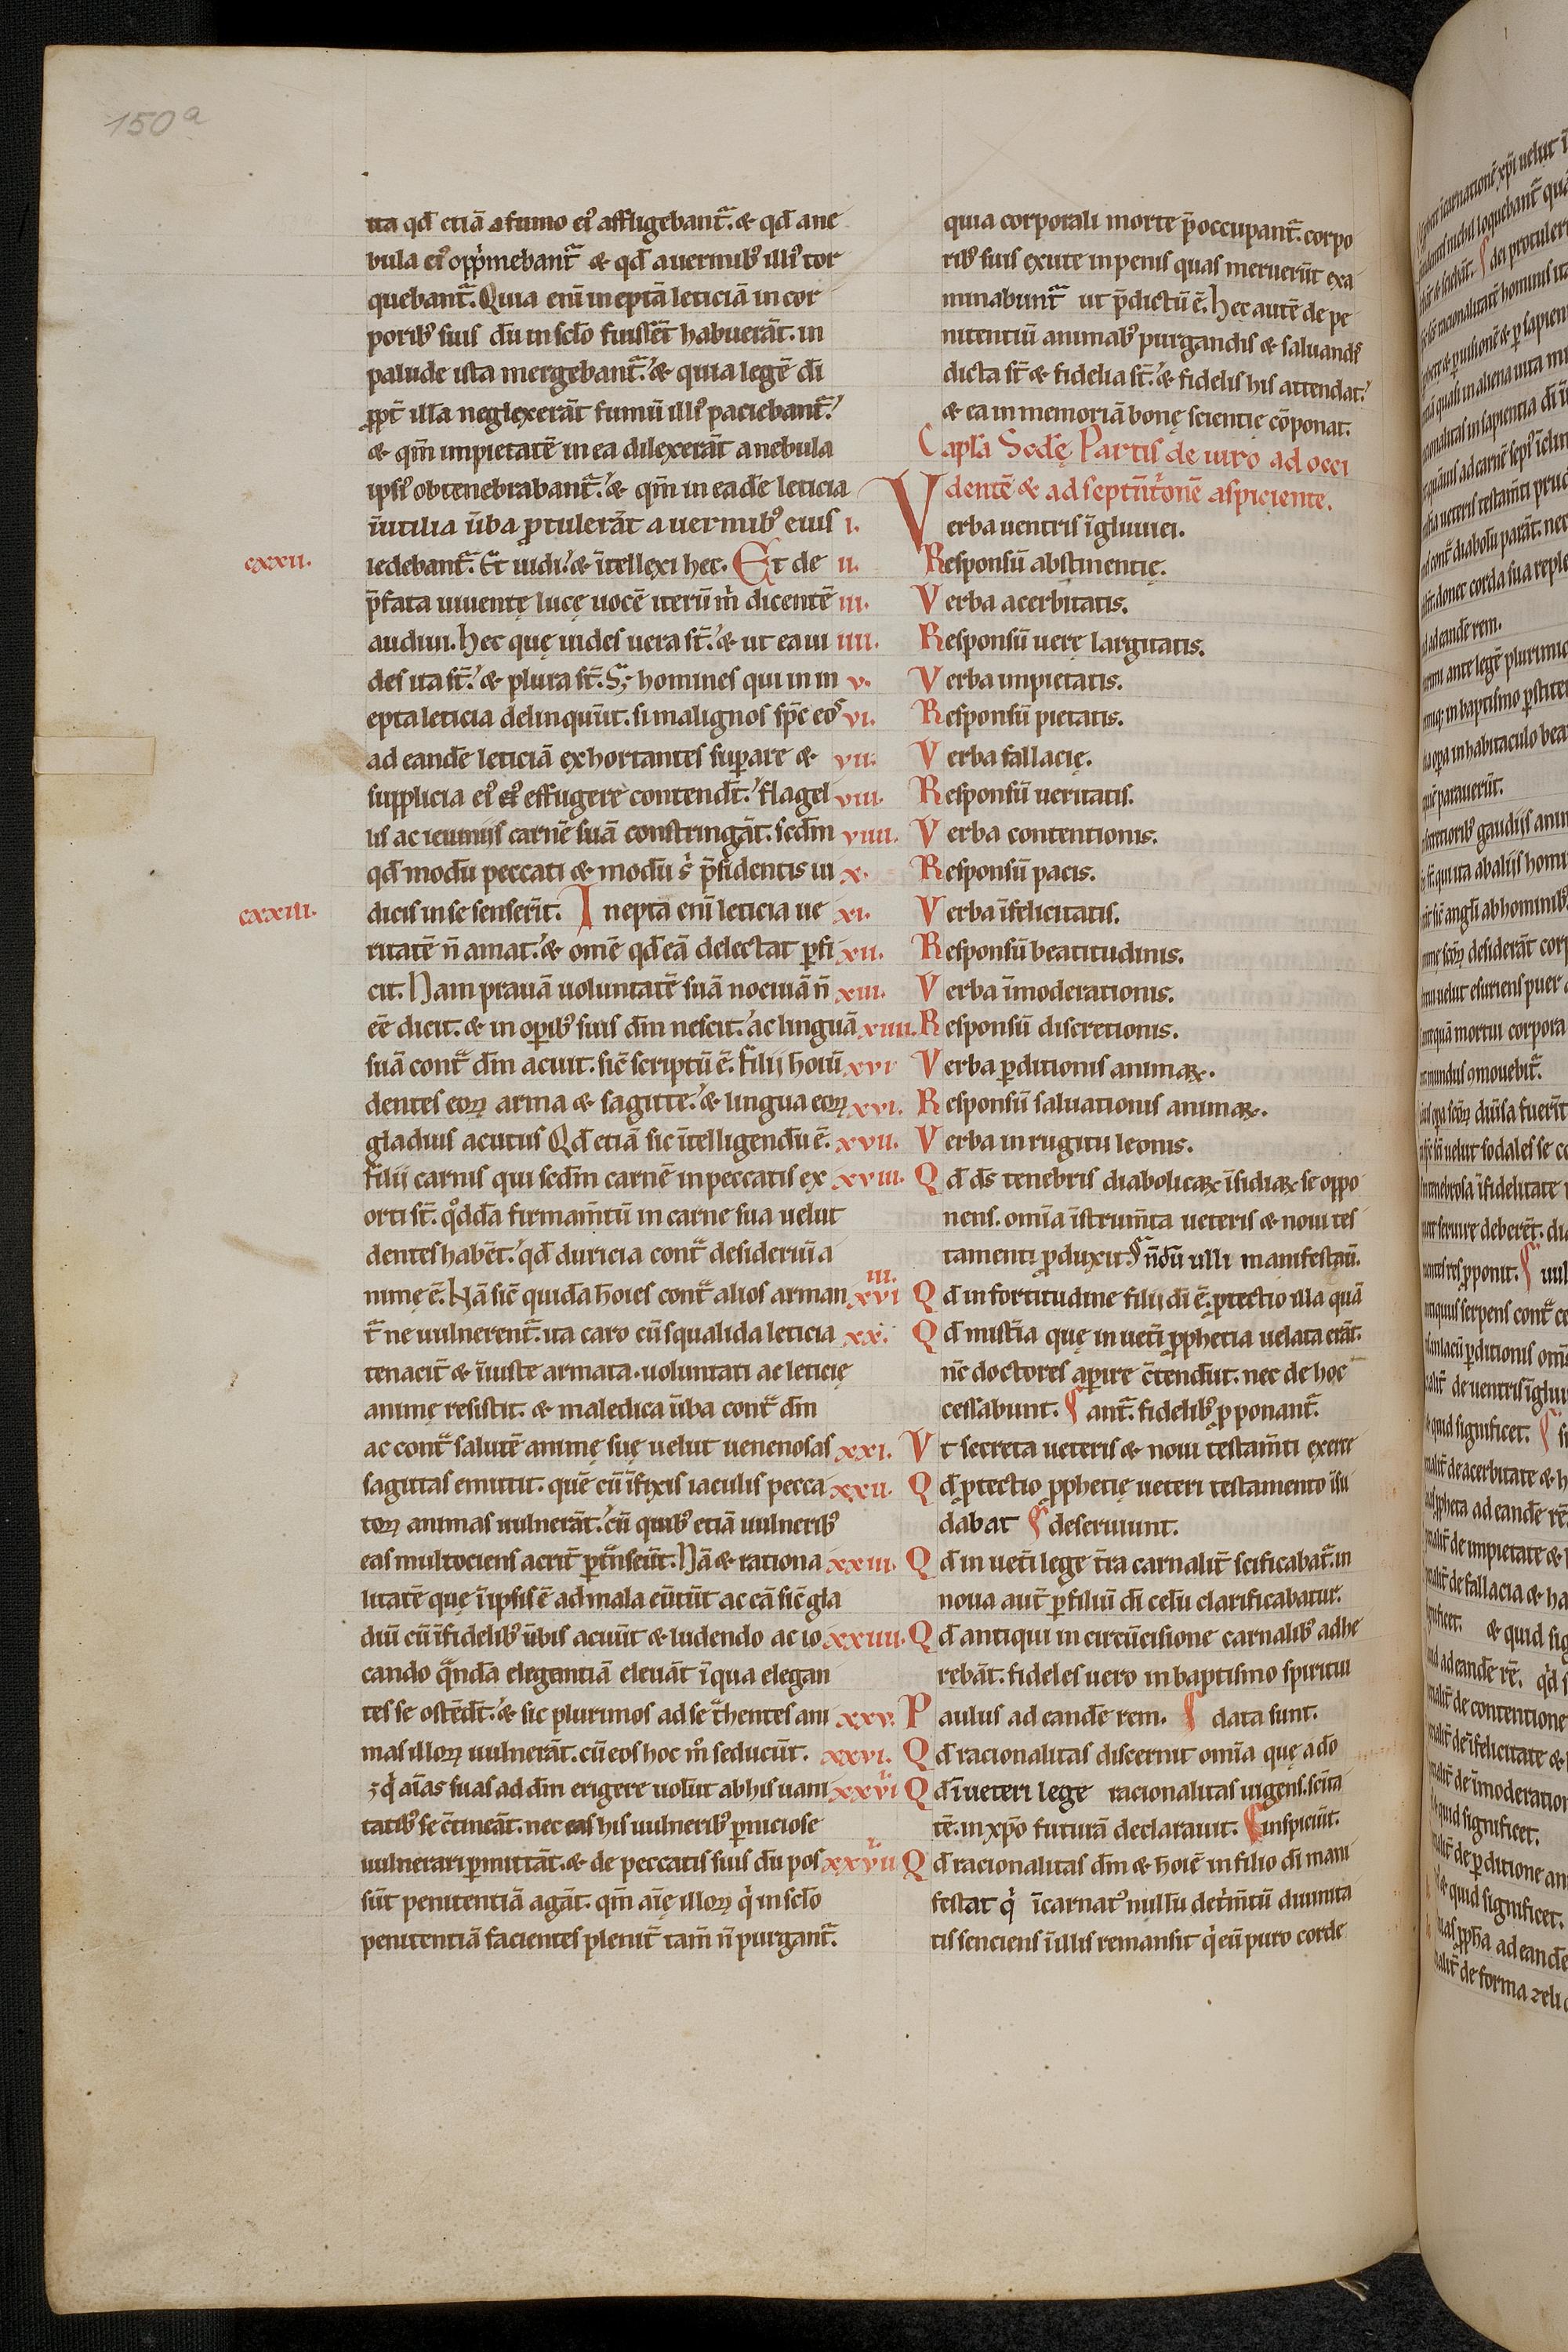 150a
ita qđ etiā a fumo ei᷒ affligebant᷑. & qđ a ne
bula ei᷒ opp̄mebant᷑ & qđ a uermib᷒ illi᷒ tor
quebant᷑. Quia eni͞ ineptā leticiā in cor
porib᷒ suis dū in sc̄lo fuissēt habuerāt. in
palude ista mergebant᷑. & quia legē dī
ꝓpt̄ illā neglexerāt fumū illi᷒ paciebant᷑.
& qm̄ impietatē in ea dilexerāt a nebula
ipsi᷒ obtenebrabant᷑. & qm̄ in eadē leticia
īutilia ūba ꝓtulerāt a uermib᷒ eius
cxxii.
ledebant᷑. Et uidi. & ītellexi hec. Et de
p̄fata uiuentę lucę uocē iterū m̄ dicentē
audiui. Hec quę uides uera st̄. & ut ea ui
des ita st̄. & plura st̄. Sꝫ homines qui in in
epta leticia delinquūt. si malignos sp̄c eos
ad eandē leticiā exhortantes suꝑare &
supplicia ei᷒ effugere contendt̄. flagel
lis ac ieiuniis carnē suā constringāt. scdm̄
qđ modū peccati & modū s̄ p̄sidentis iu
cxxiii.
dicis in se senserīt. Inepta eni͞ leticia ue
ritatē n̄ amat. & om̄e qđ eā delectat ꝑfi
cit. Nam prauā uoluntatē suā nociuā n̄
ee͞ dicit. & in opib᷒ suis dm̄ nescit. ac linguā
suā cont᷑ dm̄ acuit. sic̄ scriptū ē. Filij hoīu
dentes eoꝝ arma & sagitte. & lingua eoꝝ
gladius acutus Qđ etiā sic ītelligendū ē.
Filij carnis qui scdm̄ carnē in peccatis ex
orti st̄. q̊ddā firmam̄tū in carne sua uelut
dentes habēt. qđ duricia cont᷑ desideriū a
nimę ē. Nā sic̄ quidā hoīes cont᷑ alios arman
t᷑ ne uulnerent᷑. ita caro cū squalida leticia
tenacit̄ & īiuste armata. uoluntati ac leticię
animę resistit. & maledica ūba cont᷑ dm̄
ac cont᷑ salutē animę suę uelut uenenosas
sagittas emittit. quē cū īfixis iaculis pecca
toꝝ animas uulnerāt. cū quib᷒ etiā uulnerib᷒
eas multociens acrit̄ ꝑt᷑nseūt. Nā & rationa
litatē quę ī ipsis ē ad mala eūtūt ac eā sic̄ gla
diū cū īfidelib᷒ ūbis acuūt & ludendo ac io
cando q᷑ndā elegantiā eleuāt ī qua elegan
tes se ostēdt̄. & sic plurimos ad se t᷑hentes ani
mas illoꝝ uulnerāt. cū eos hoc m̊ seducūt.
ꝫ q̇ aīas suas ad dm̄ erigere uolūt ab his uani
tatib᷒ se c̄tineāt. nec eas his uulnerib᷒ ꝑniciose
uulnerari ꝑmittāt. & de peccatis suis dū pos
sūt penitentiā agāt. qm̄ aīę illoꝝ q̇ in sc̄lo
penitentiā facientes plenit̄ tam̄ n̄ purgant᷑.
quia corporali morte p̄occupant᷑. corpo
rib᷒ suis exute in penis quas meruerūt exa
minabunt᷑ ut p̄dictū ē. Hec autē de pe
nitentiū animab᷒ purgandis & saluandis
dicta st̄ & fidelia st̄. & fidelis his attendat.
& ea in memoriā bonę scientię cōponat.
Capl̄a Scd̄ę Partis de uiro ad occi
dentē & ad septent᷑onē aspiciente.
i. Verba uentris īgluuiei.
ii. Responsū abstinentię.
iii. Verba acerbitatis.
iiii. Responsū uerę largitatis.
v. Verba impietatis.
vi. Responsū pietatis.
vii. Verba fallacię.
viii. Responsū ueritatis.
viiii. Verba contentionis.
x. Responsū pacis.
xi. Verba īfelicitatis.
xii. Responsū beatitudinis.
xiii. Verba īmoderationis.
xiiii. Responsū discretionis.
xvi Verba ꝑditionis animaꝝ.
xvi. Responsū saluationis animaꝝ.
xvii. Verba in rugitu leonis.
xviii. Qđ ds̄ tenebris diabolicaꝝ īsidiaꝝ se oppo
nens. om̄ia īstrum̄ta ueteris & noui tes
tamenti ꝓduxit. n̄dū ulli manifestāū.
xviiii Qđ in fortitudine filij dī ē. ꝓtectio illa quā
xx. Qđ mist̄ia quę in uet̄i ꝓphetia uelata erāt.
nc̄ doctores aꝑire c̄tendūt. nec de hoc
cessabunt. ant᷑. fidelib᷒ ꝓponant᷑.
xxi. Vt secreta ueteris & noui testam̄ti exere
xxii. Qđ ꝓtectio ꝓphetię ueteri testamento īsu
dabat deseruiunt.
xxiii. Qđ in uet̄i lege t̄ra carnalit̄ scificabat᷑. in
noua aut̄ ꝑ filiū dī celū clarificabatur.
xxiiii. Qđ antiqui in circūcisione carnalib᷒ adhe
rebāt. fideles uero in baptismo spiritu
xxv. Paulus ad eandē rem. data sunt.
xxvi. Qđ racionalitas discernit om̄ia quę a dō
xxvii Qđ ī ueteri lege racionalitas uigens. scīta
tē. in xp̄o futurā declarauit. inspiciūt.
xxviii Qđ racionalitas dm̄ & hoīē in filio dī mani
festat q̇ īcarnat᷒ nullū det᷑m̄tū diuinita
tis senciens ī illis remansit q̇ eū puro corde